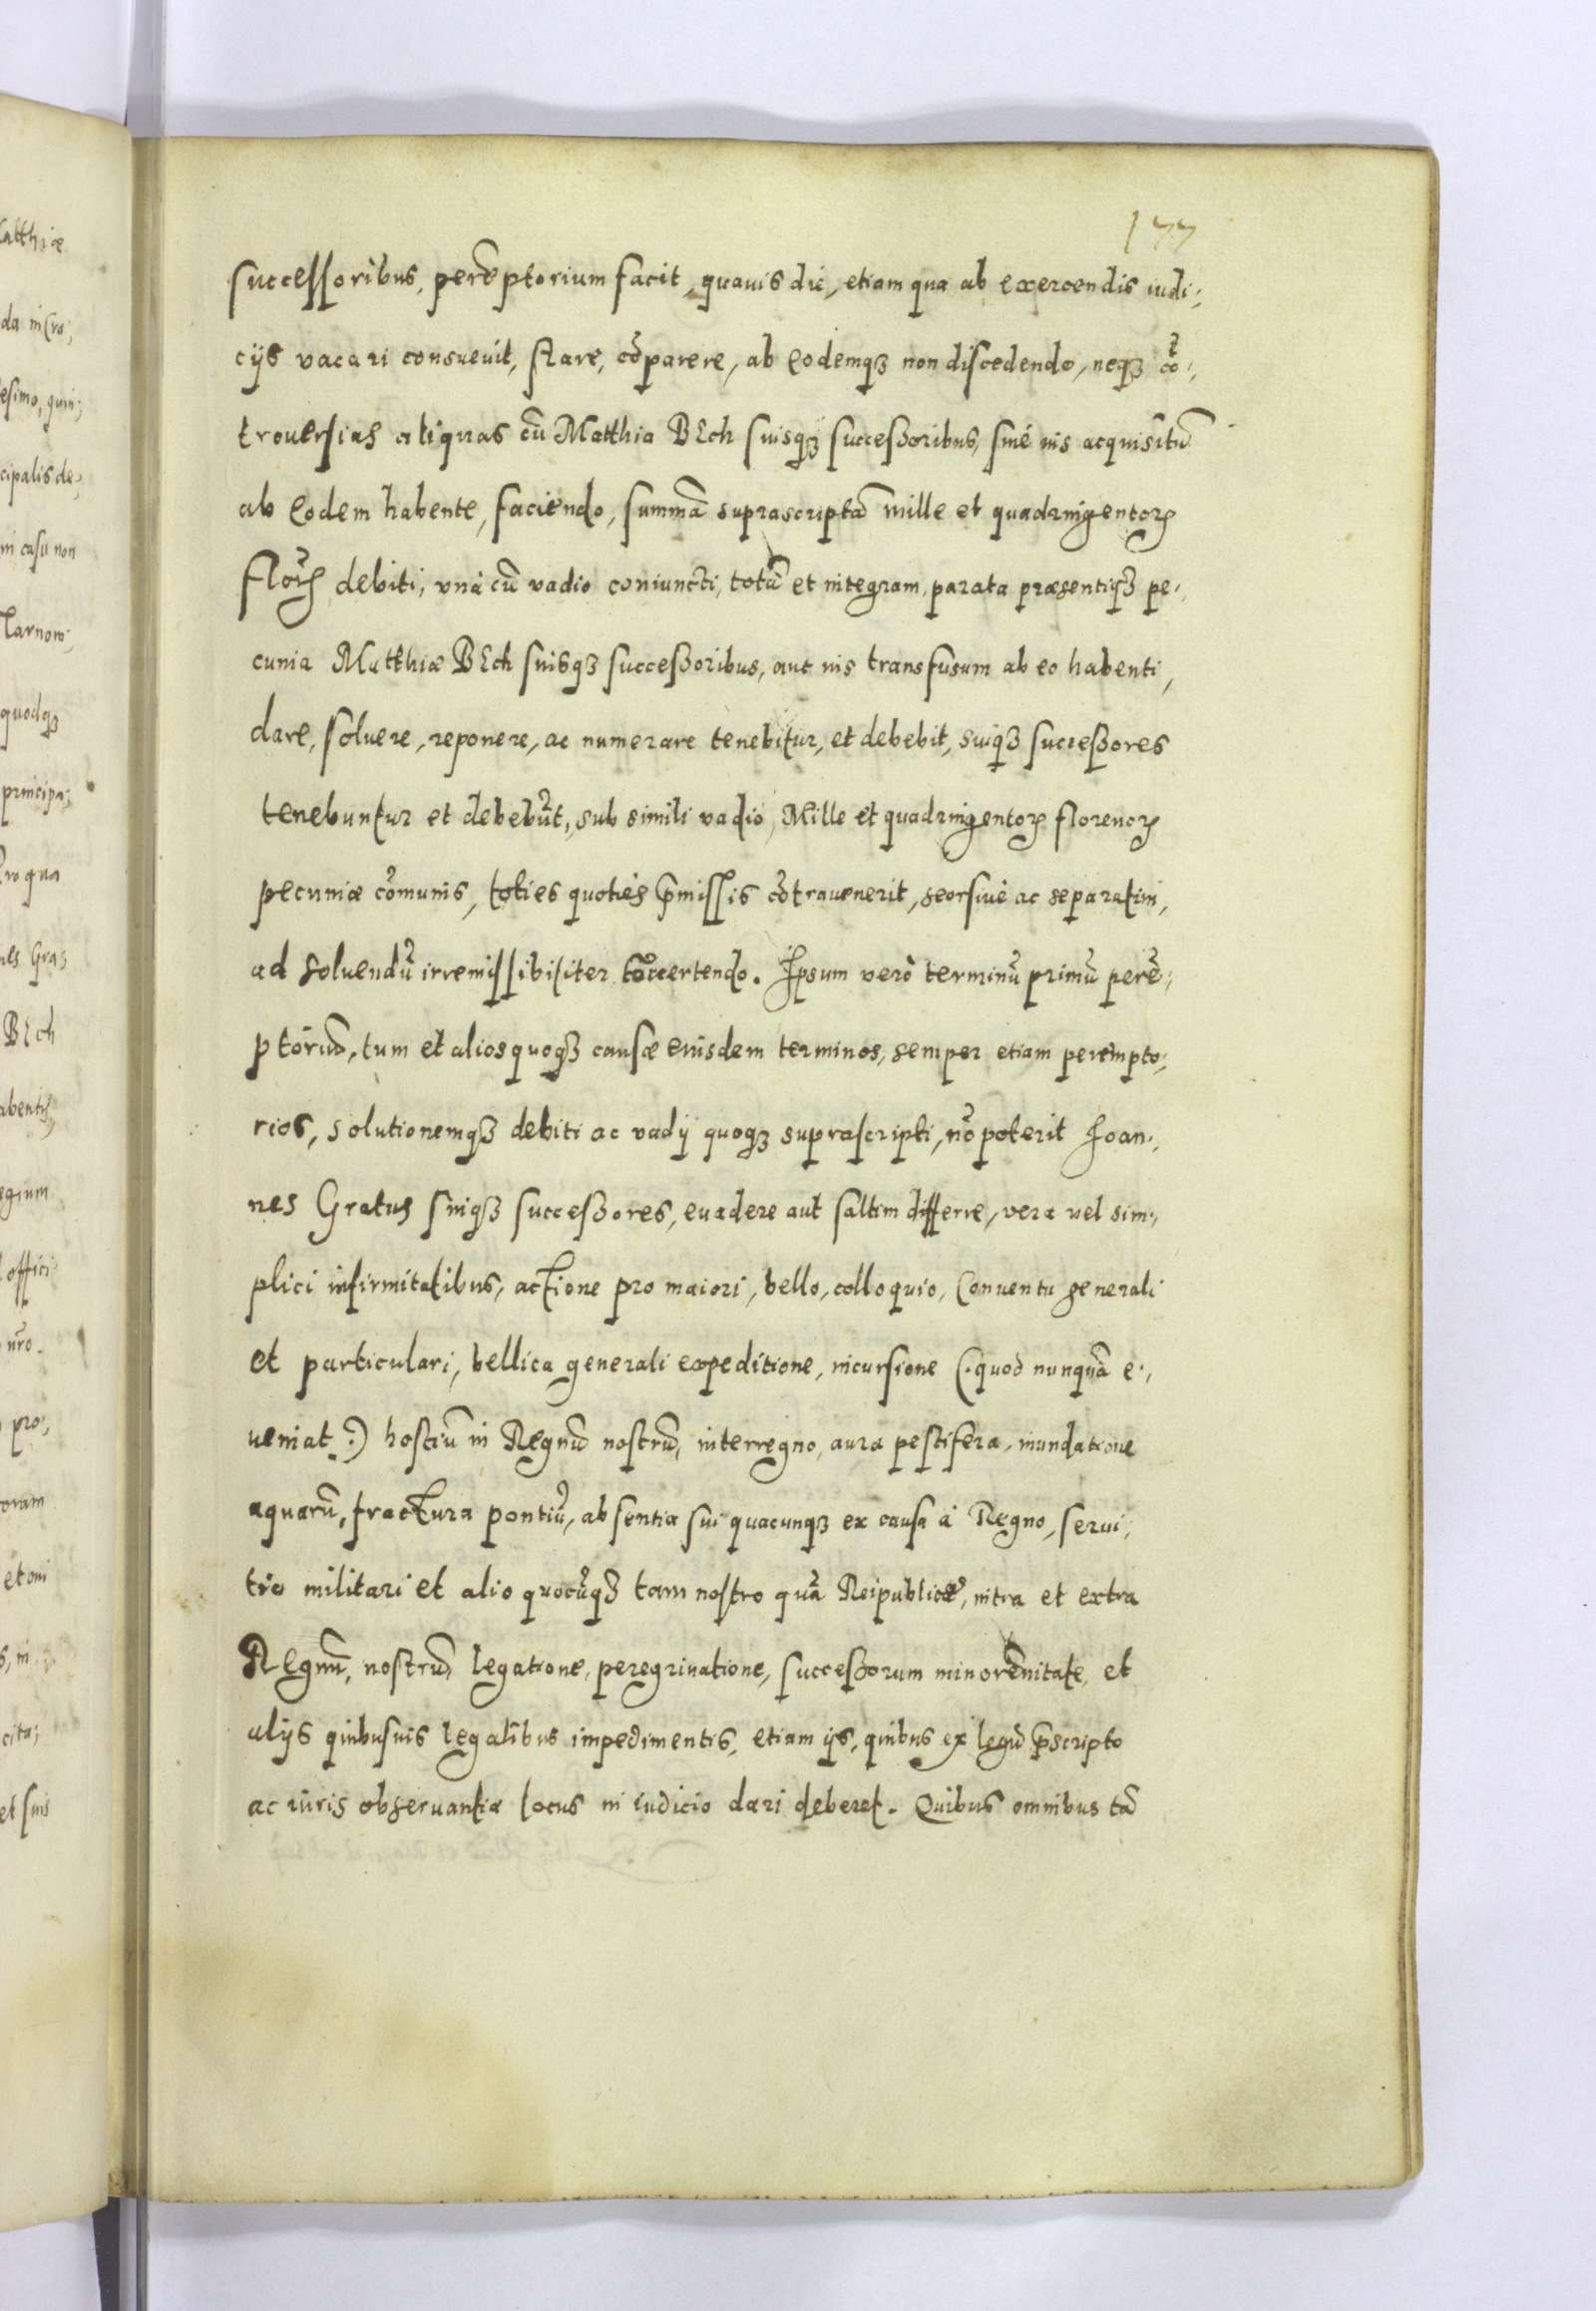 177
successoribus, perēptorium facit, quauis die, etiam qua ab exercendis iudi;
cijs vacari consueuit, stare, cōparere, ab eodemq3 non discedendo, neq3 cō;
trouersias aliquas cū Matthia BEch suisq3 successoribus, siue ius acquisitū
ab eodem habente, faciendo, summā suprascriptā mille et quadringentorꝝ
florꝝ debiti, vnà cū vadio coniuncti, totā et integram, parata praesentiq3 pe;
cunia Matthiæ BEch suisq3 successoribus, aut ius transfusum ab eo habenti,
dare, soluere, reponere, ac numerare tenebitur, et debebit, suiq3 successores
tenebuntur et debebūt, sub simili vadio, Mille et quadringentorꝝ florenorꝝ
pecuniæ cōmunis, toties quoties p̄missis cōtrauenerit, seorsiuè ac separatim,
ad soluendū irremissibiliter succertendo. Ipsum verò terminū primū perē;
ptoriū, tum et alios quoq3 causæ eiusdem terminos, semper etiam perempto;
rios, solutionemq3 debiti ac vadij quoq3 suprascripti, nō poterit Joan;
nes Gratus suiq3 successores, euadere aut saltim differre, vera vel sim;
plici infirmitatibus, actione pro maiori, bello, colloquio, Conuentu generali
et particulari, bellica generali expeditione, incursione (:quod nunquā e;
ueniat:) hostiū in Regnū nostrū, interregno, aura pestifera, inundatione
aquarū, fractura pontiū, absentia sui quacunq3 ex causa à Regno, serui;
tio militari et alio quocūq3 tam nostro quā Reipublicæ, intra et extra
Regnū, nostrū legatione, peregrinatione, successorum minorēnitate, et
alijs quibusuis legalibus impedimentis, etiam ijs, quibus ex legū p̄scripto
ac iuris obseruantia locus in iudicio dari deberet. Quibus omnibus tā